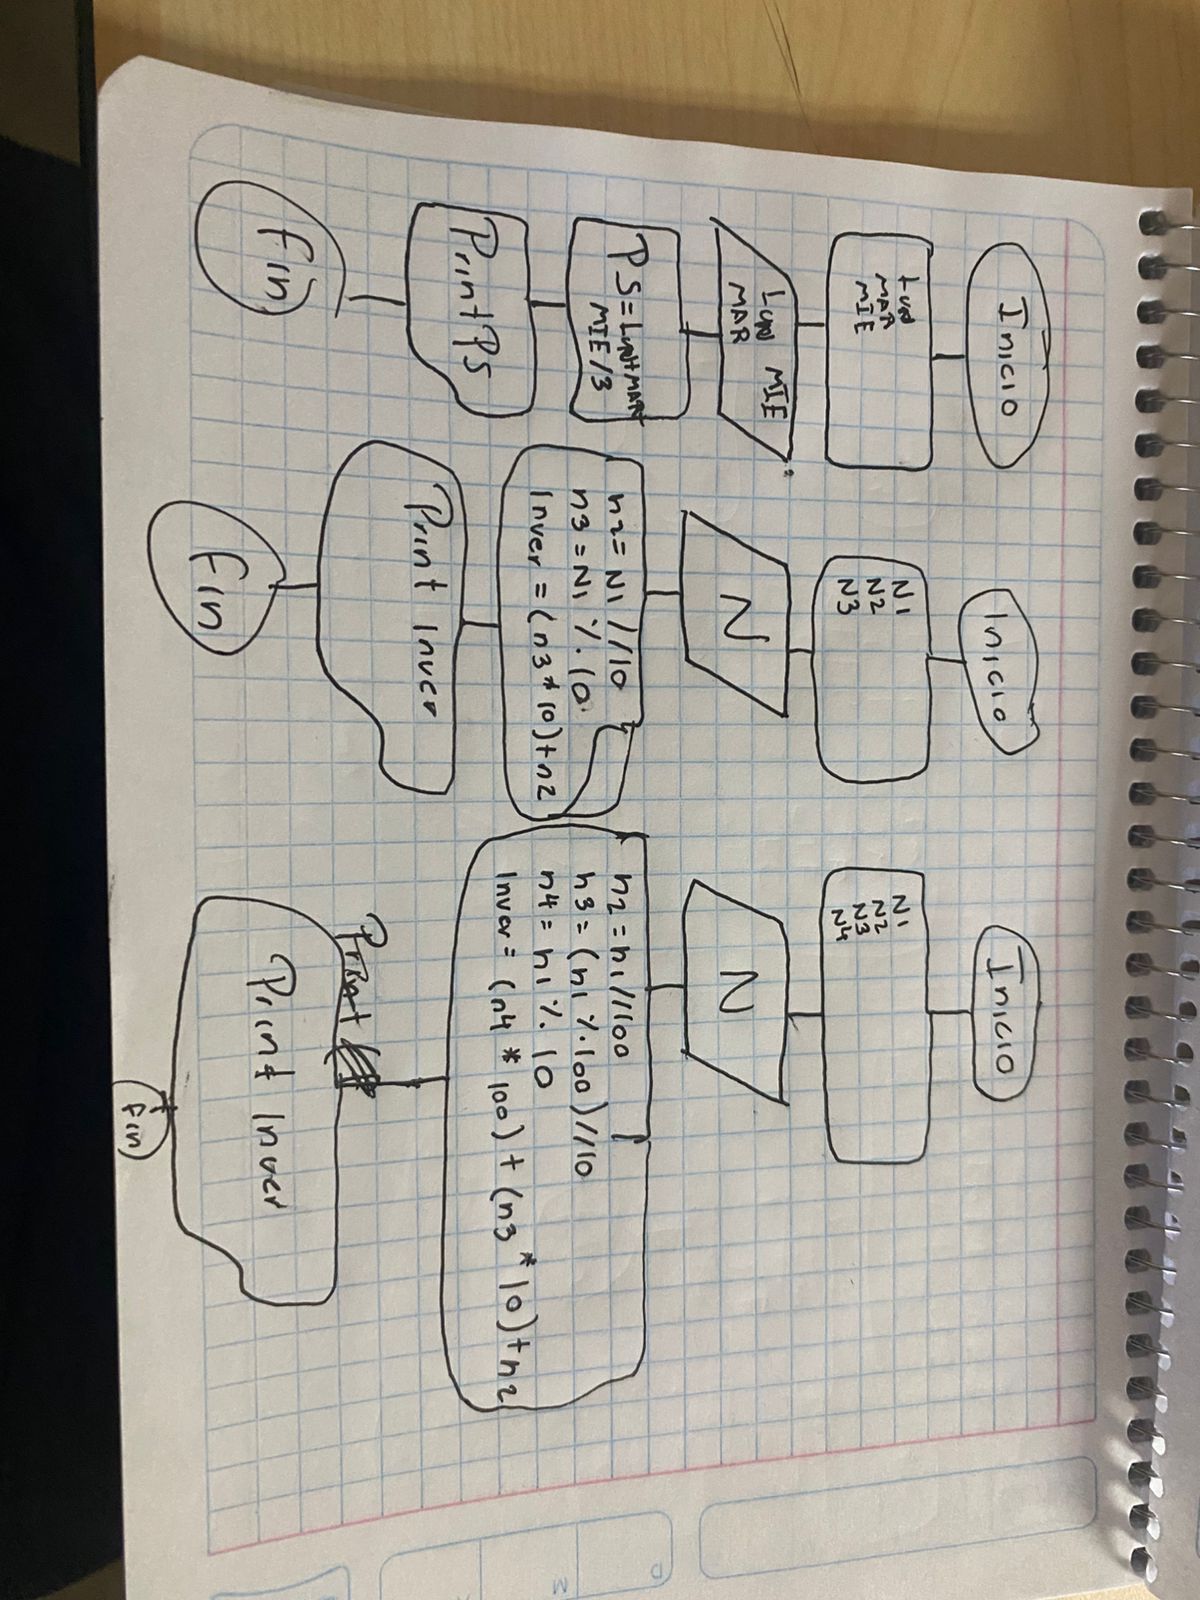 Inicio
Lun
MAR
MIE
Lun MIE
MAR
PS=Lun+MAR+
MIE/3
Print PS
Fin
Inicio
N1
N2
N3
N
n2= N1//10
n3=N1%10
Inver=(n3*10)+n2
Print Inver
Fin
Inicio
N1
N2
N3
N4
N
n2=n1//100
n3=(n1%100)//10
n4=n1%10
Inver=(n4*100)+(n3*10)+n2
Print Inver
Fin
P
M